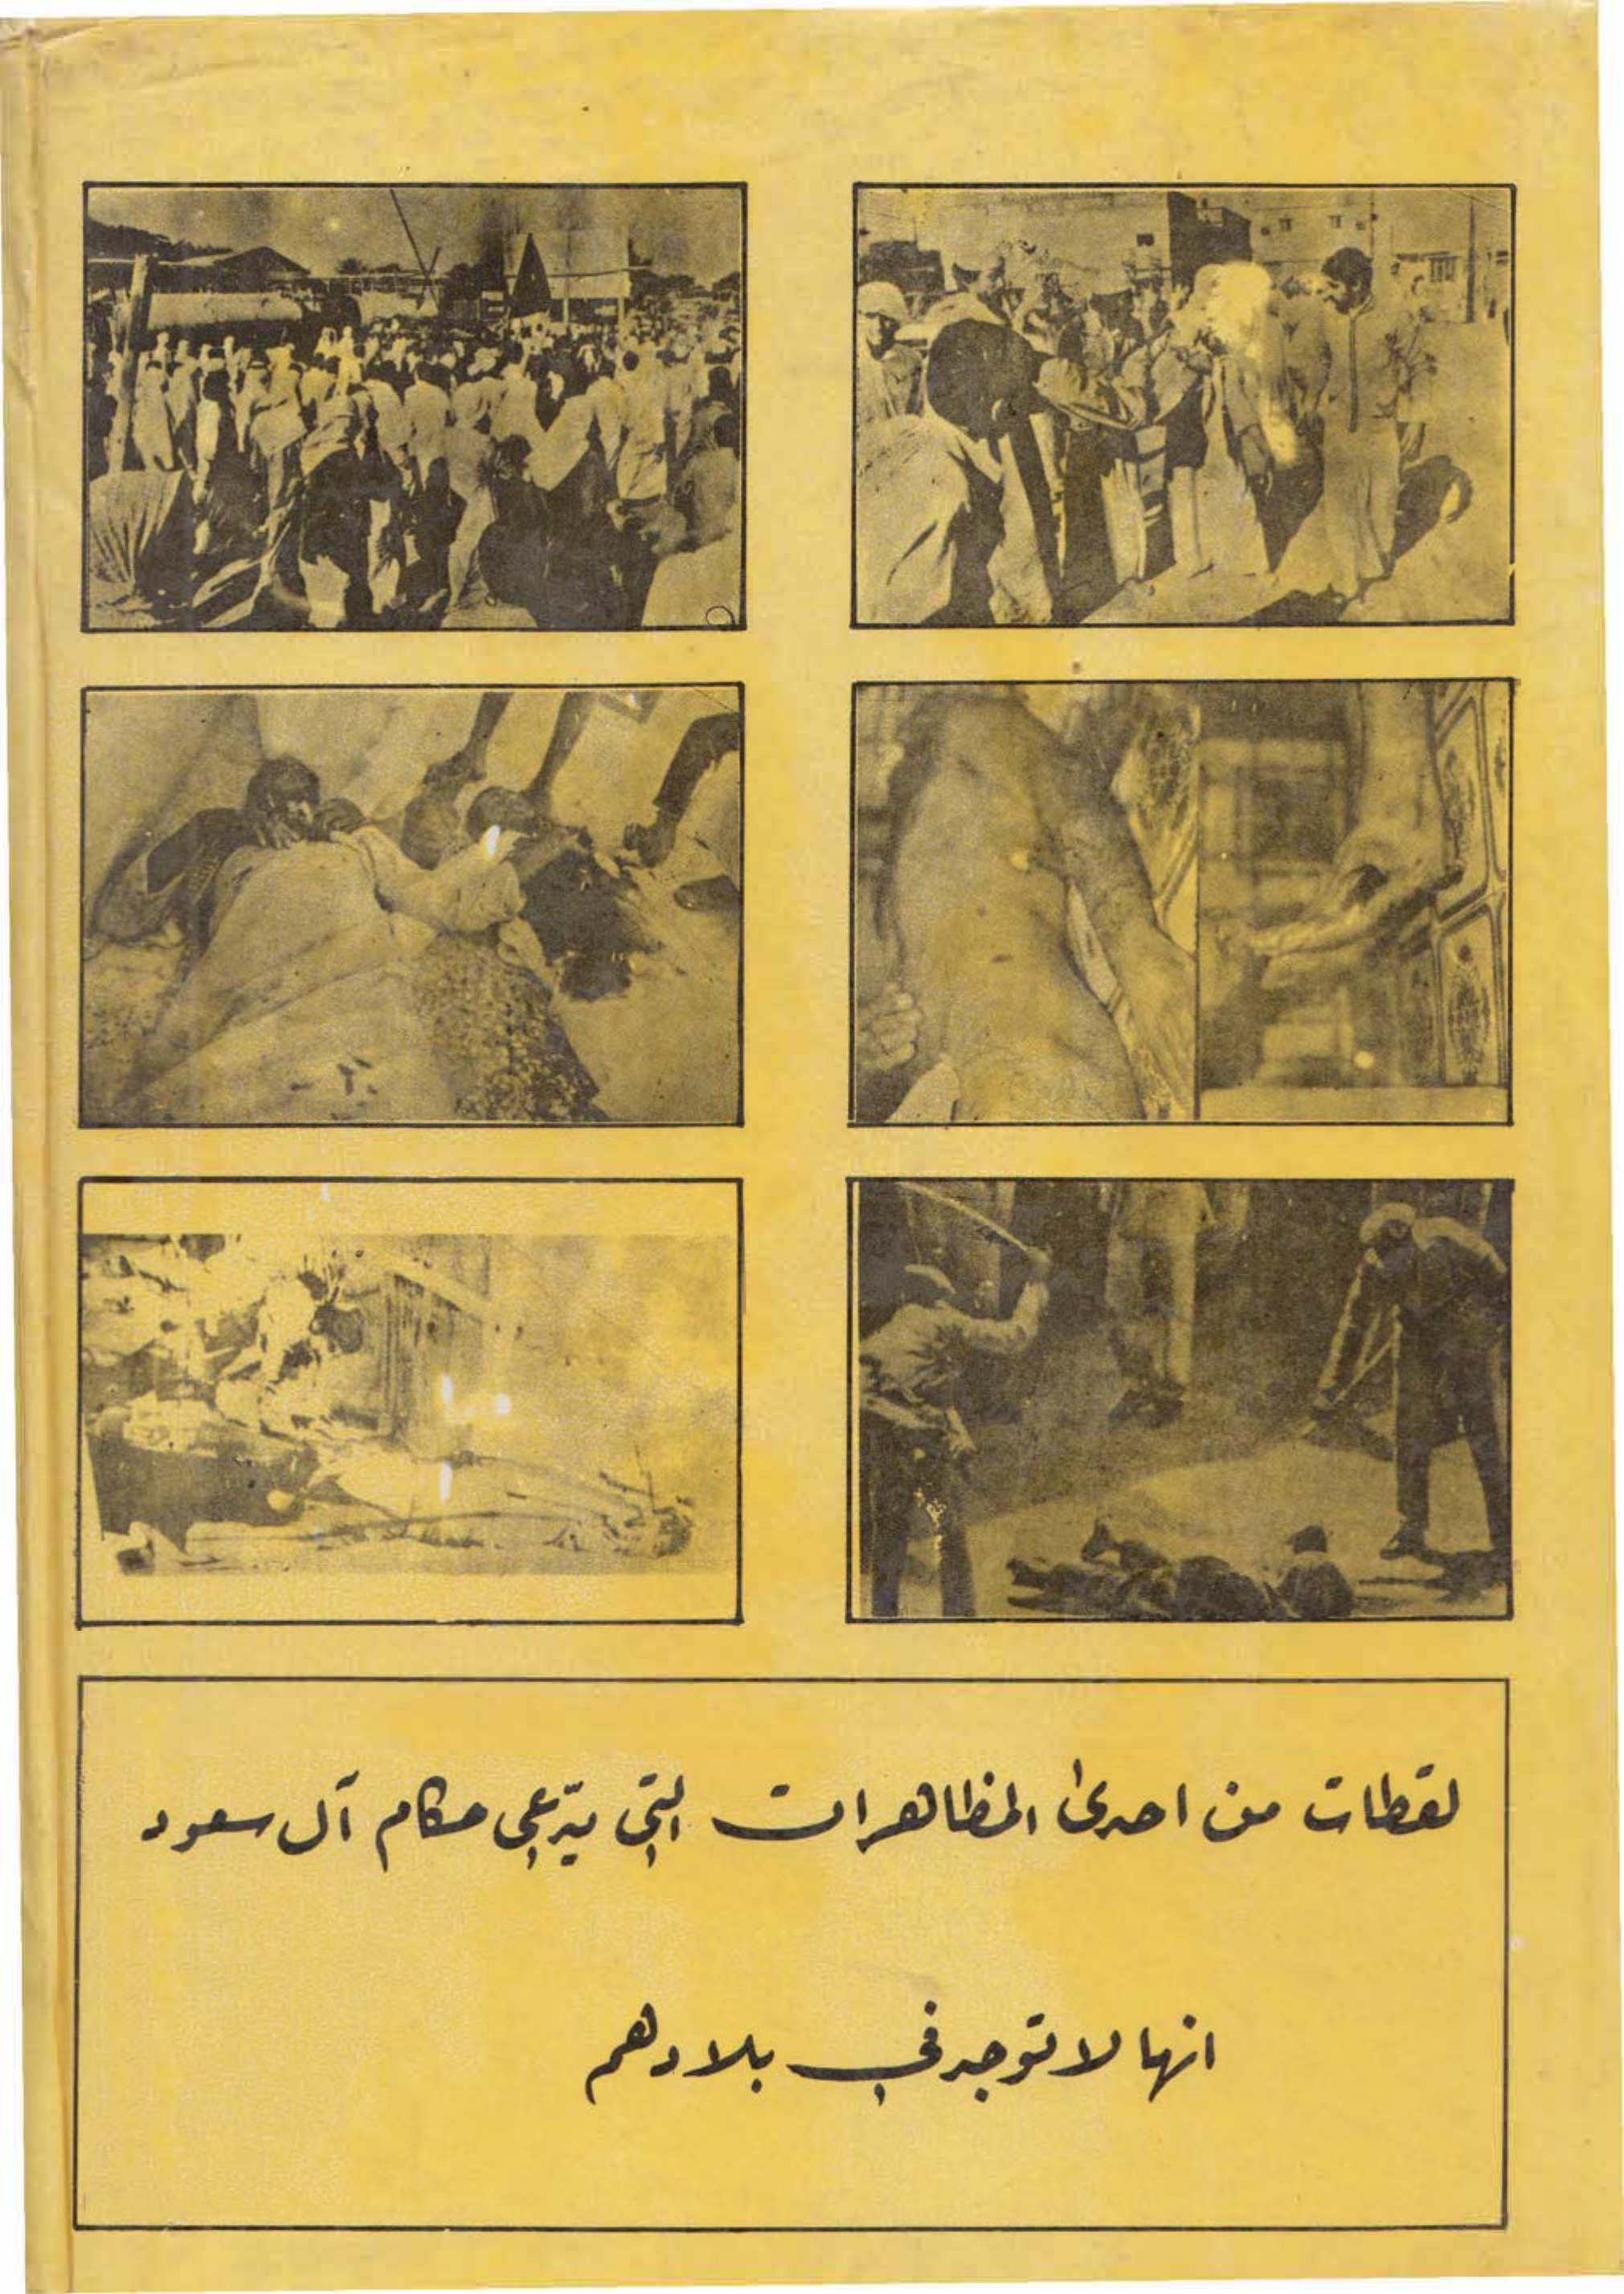 لقطات من احدى المظاهرات التي يدّعي حكام آل سعود
انها لا توجد في بلادهم